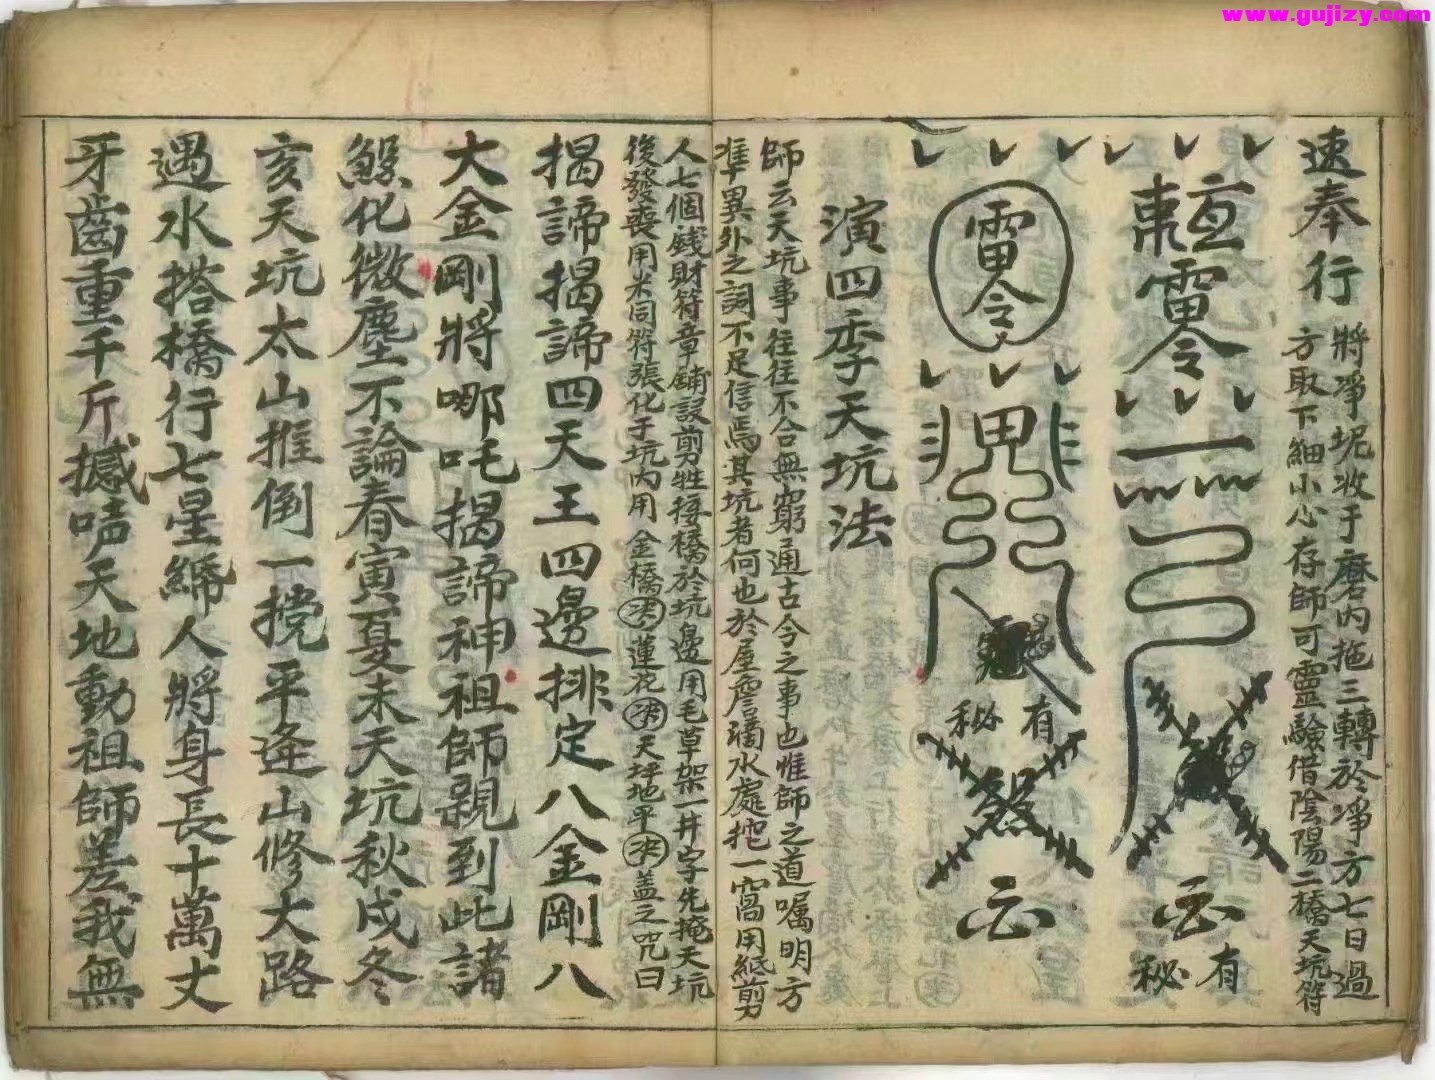 www.gujizy.com
速奉行
將凈坭收于磨內拖三轉於凈方七日過
方取下細小心存師可靈驗借陰陽二橋天坑符
雷令
有
秘
雷令
有
秘
煞
演四季天坑法
師云天坑事往往不合無窮通古今之事也惟師之道囑明方
准異外之詞不足信焉其坑者何也於屋詹滴水處挖一窩用紙剪
人七個錢財符章鋪設剪牲接橋於坑邊用毛草架一井字先掩天坑
後發喪用米同符張化于坑內用金橋決蓮花決天坪地平決蓋之咒曰
揭諦揭諦四天王四邊排定八金剛八
大金剛將哪吒揭諦神祖師親到此諸
煞化微塵不論春寅夏未天坑秋戌冬
亥天坑太山推倒一攪平逢山修大路
遇水搭橋行七星縧人將身長十萬丈
牙齒重千斤撼唝天地動祖師差我無